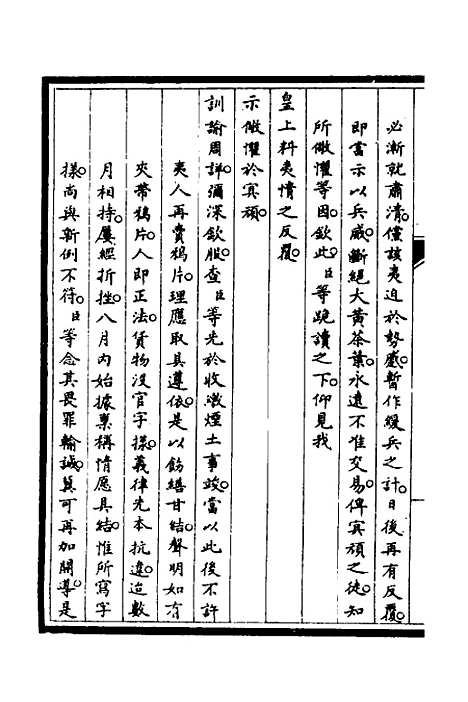 必漸就肅清。儻該夷迫於勢感。暫作緩兵之計。日後再有反覆。
即當示以兵威。斷絕大黃茶葉。永遠不准交易。俾冥頑之徒。知
所儆懼等因。欽此。臣等跪讀之下。仰見我
皇上料夷情之反覆。
示儆懼於冥頑。
訓諭周詳。彌深欽服。查臣等先於收繳煙土事竣。當以此後不許
夷人再賣鴉片。理應取具遵依。是以飭繕甘結。聲明如有
夾帶鴉片。人即正法。貨物沒官字樣。義律先本抗違。迨數
月相持。屢經折挫。八月內始據稟稱情愿具結。惟所寫字
樣。尚與新例不符。臣等念其畏罪輸誠。冀可再加開導。是